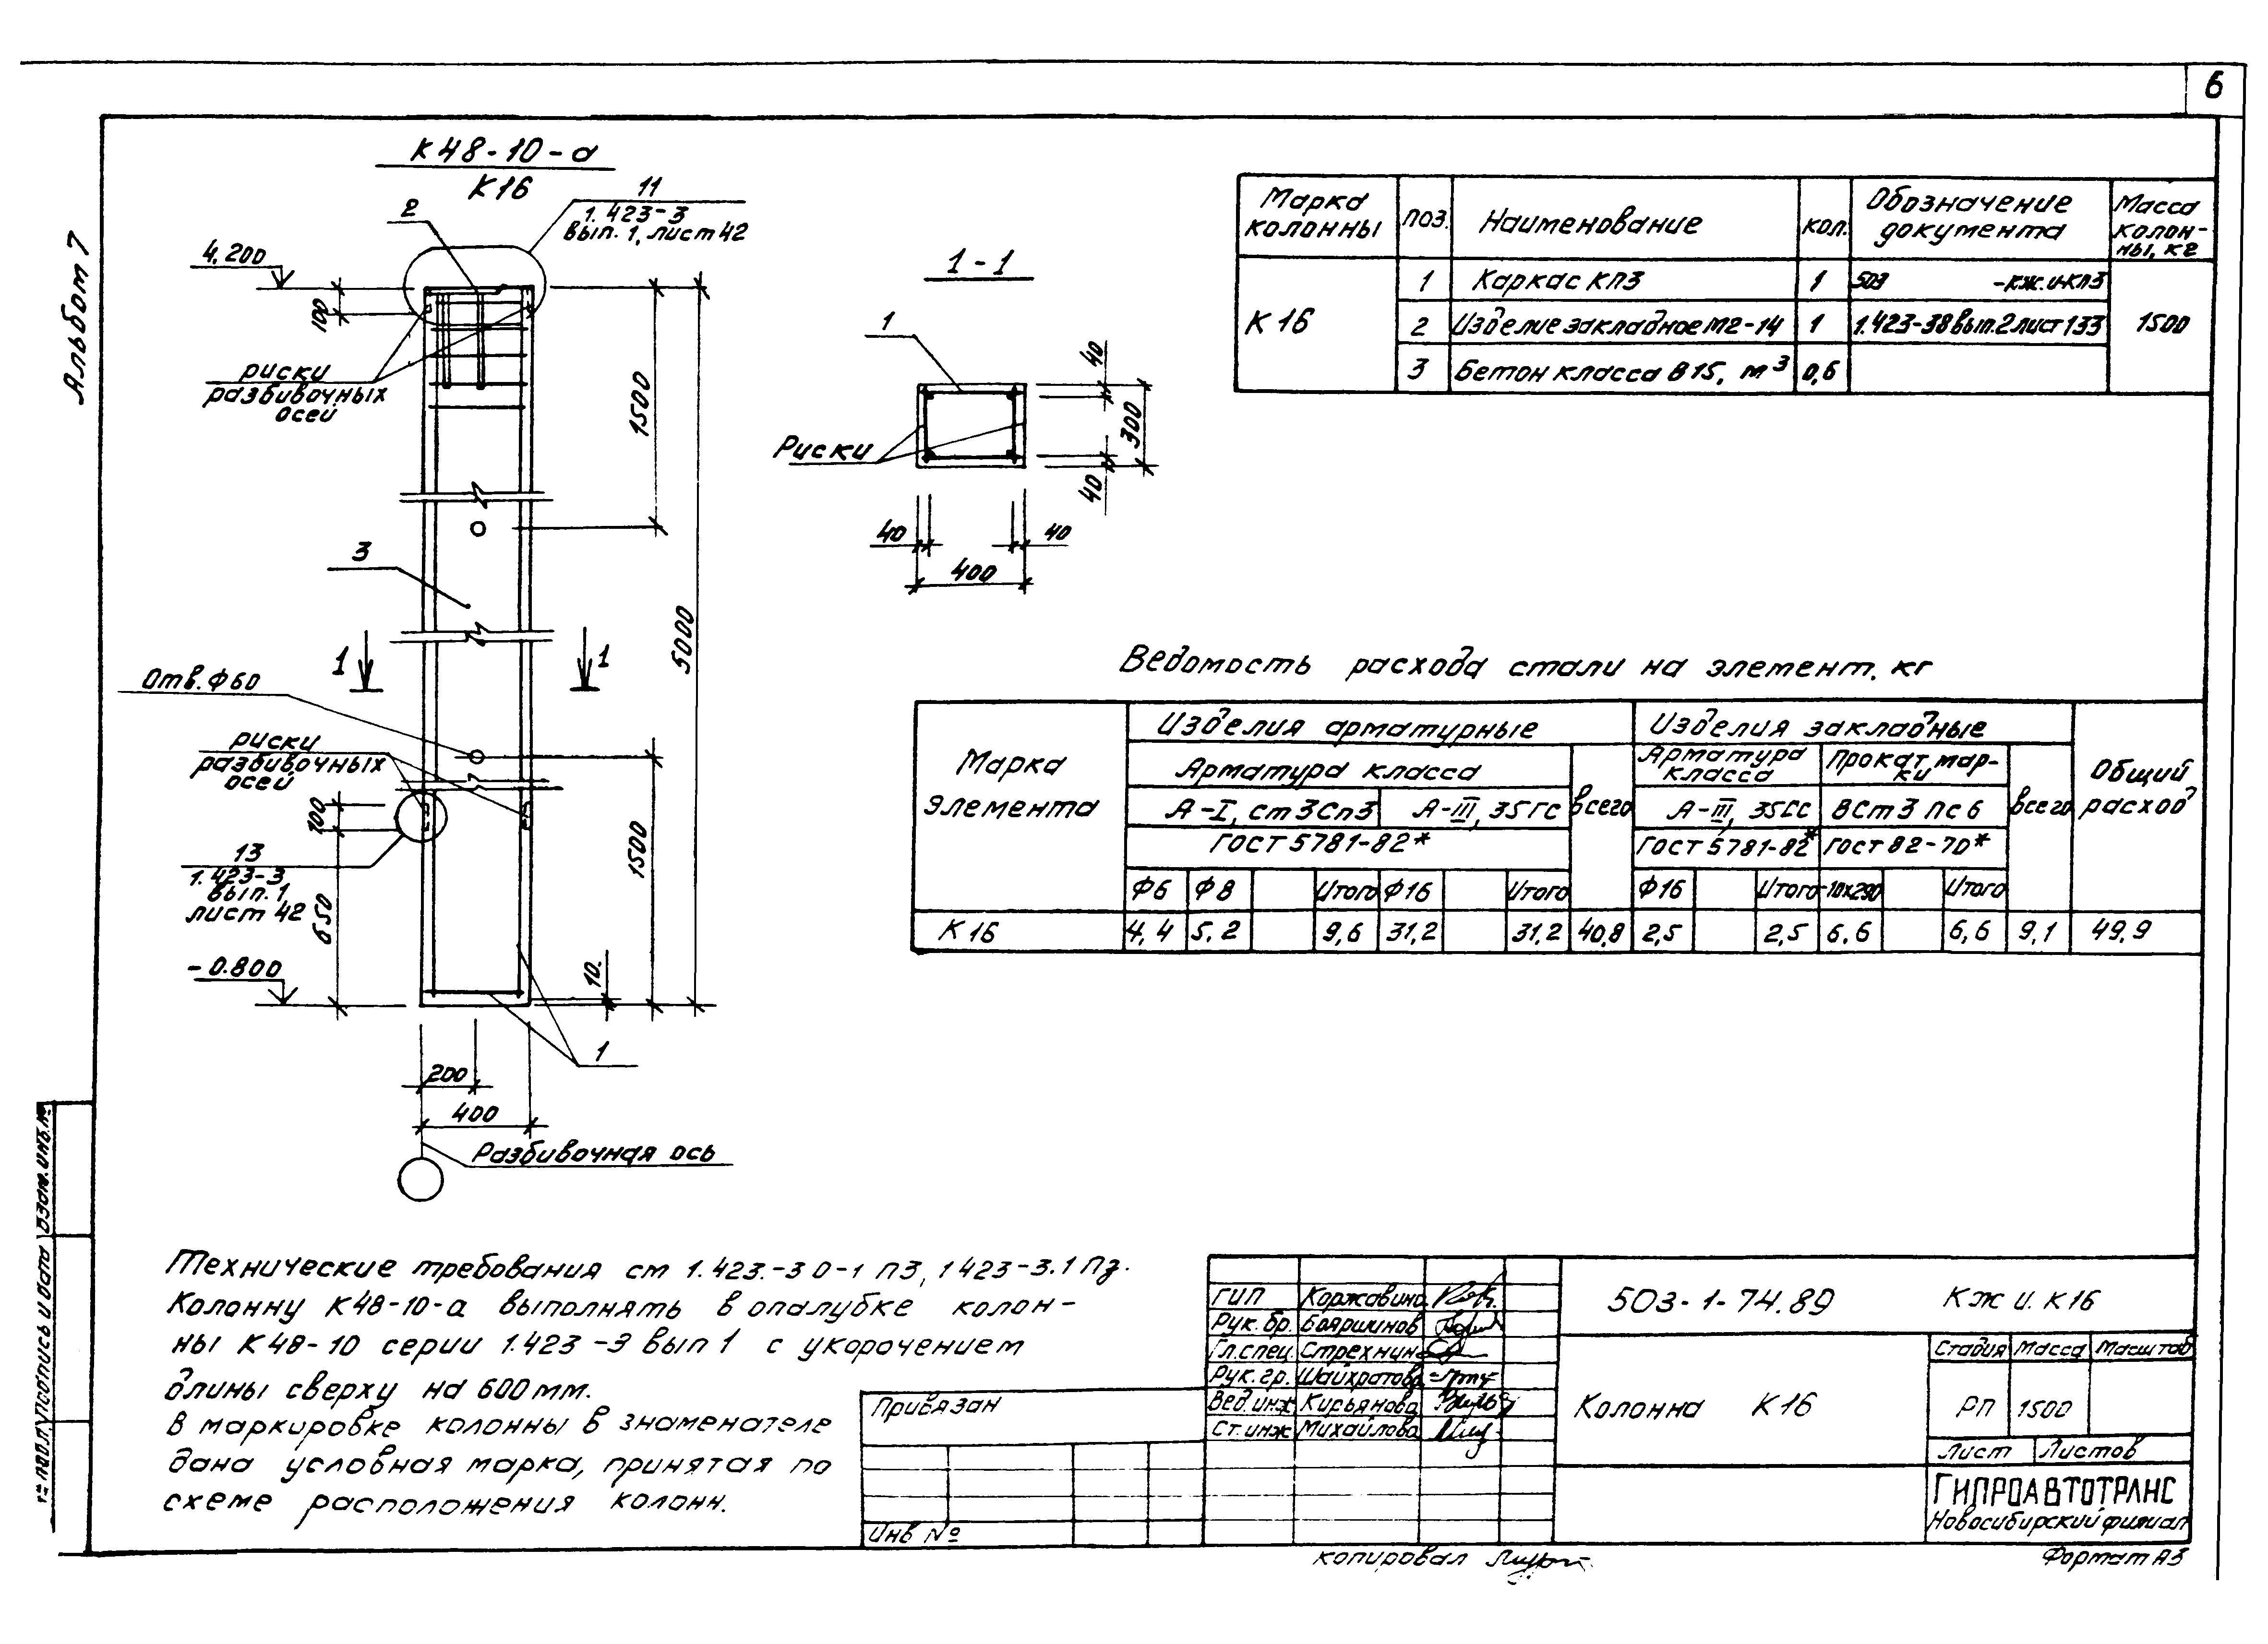 6
Альбом 7
К48-10-а
К16
11
1.423-3
вып. 1, лист 42
2
4,200
100
риски
разбивочных
осей
1500
3
5000
1
1
Отв. Ф60
риски
разбивочных
осей
100
13
1.423-3
вып. 1
лист 42
650
1500
-0.800
10
1
200
400
Разбивочная ось
1-1
1
Риски
40
300
40
40
40
400
Марка колонны | поз. | Наименование | кол. | Обозначение документа | Масса колон-ны, кг
К16 | 1 | Каркас КП3 | 1 | 503 -кж.и-КП3 | 1500
2 | Изделие закладное М2-14 | 1 | 1.423-38 вып.2 лист 133
3 | Бетон класса В15, м³ | 0,6
Ведомость расхода стали на элемент, кг
Марка элемента | Изделия арматурные | Изделия закладные | Общий расход
Арматура класса | всего | Арматура класса | Прокат мар-ки | всего
А-I, ст3Сп3 | А-III, 35ГС | А-III, 35ГС | ВСт3 пс6
ГОСТ 5781-82* | ГОСТ 5781-82* | ГОСТ 82-70*
Ф6 | Ф8 | Итого | Ф16 | Итого | Ф16 | Итого | -10х290 | Итого
К16 | 4,4 | 5,2 | 9,6 | 31,2 | 31,2 | 40,8 | 2,5 | 2,5 | 6,6 | 6,6 | 9,1 | 49,9
Технические требования см 1.423.-3 0-1 ПЗ, 1423-3.1 ПЗ.
Колонну К48-10-а выполнять в опалубке колон-
ны К48-10 серии 1.423-3 вып 1 с укорочением
длины сверху на 600мм.
В маркировке колонны в знаменателе
дана условная марка, принятая по
схеме расположения колонн.
Привязан
Инв №
ГИП Коржавина
Рук. бр. Бояршинов
Гл.спец. Стрехнин
Рук. гр. Шайхратова
Вед.инж Кирьянова
Ст.инж Михайлова
503-1-74.89 КЖ И. К16
Колонна К16
Стадия Масса Масштаб
РП 1500
Лист Листов
ГИПРОАВТОТРАНС
Новосибирский филиал
копировал
Формат А3
Взам.инв.№
Подпись и дата